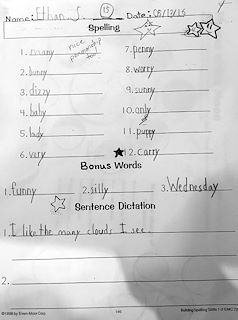 Name: Ethan S. 15 Date: 05/13/15
Spelling
nice penmanship too!
1. many 7. penny
2. bunny 8. worry
3. dizzy 9. sunny
4. baby 10. only
5. lady 11. puppy
6. very 12. carry
Bonus Words
1. funny 2. silly 3. Wednesday
Sentence Dictation
1. I like the many clouds I see.
2.
©1998 by Evan-Moor Corp. 146 Building Spelling Skills